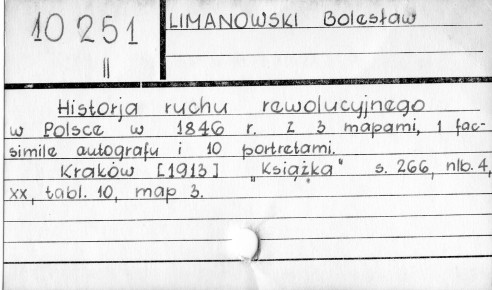 10 251
II
LIMANOWSKI Bolesław
Historja ruchu rewolucyjnego
w Polsce w 1846 r. z 3 mapami, 1 fac-
simile autografu i 10 portretami.
Kraków [1913] „Książka" s. 266, nlb. 4,
xx, tabl. 10, map 3.